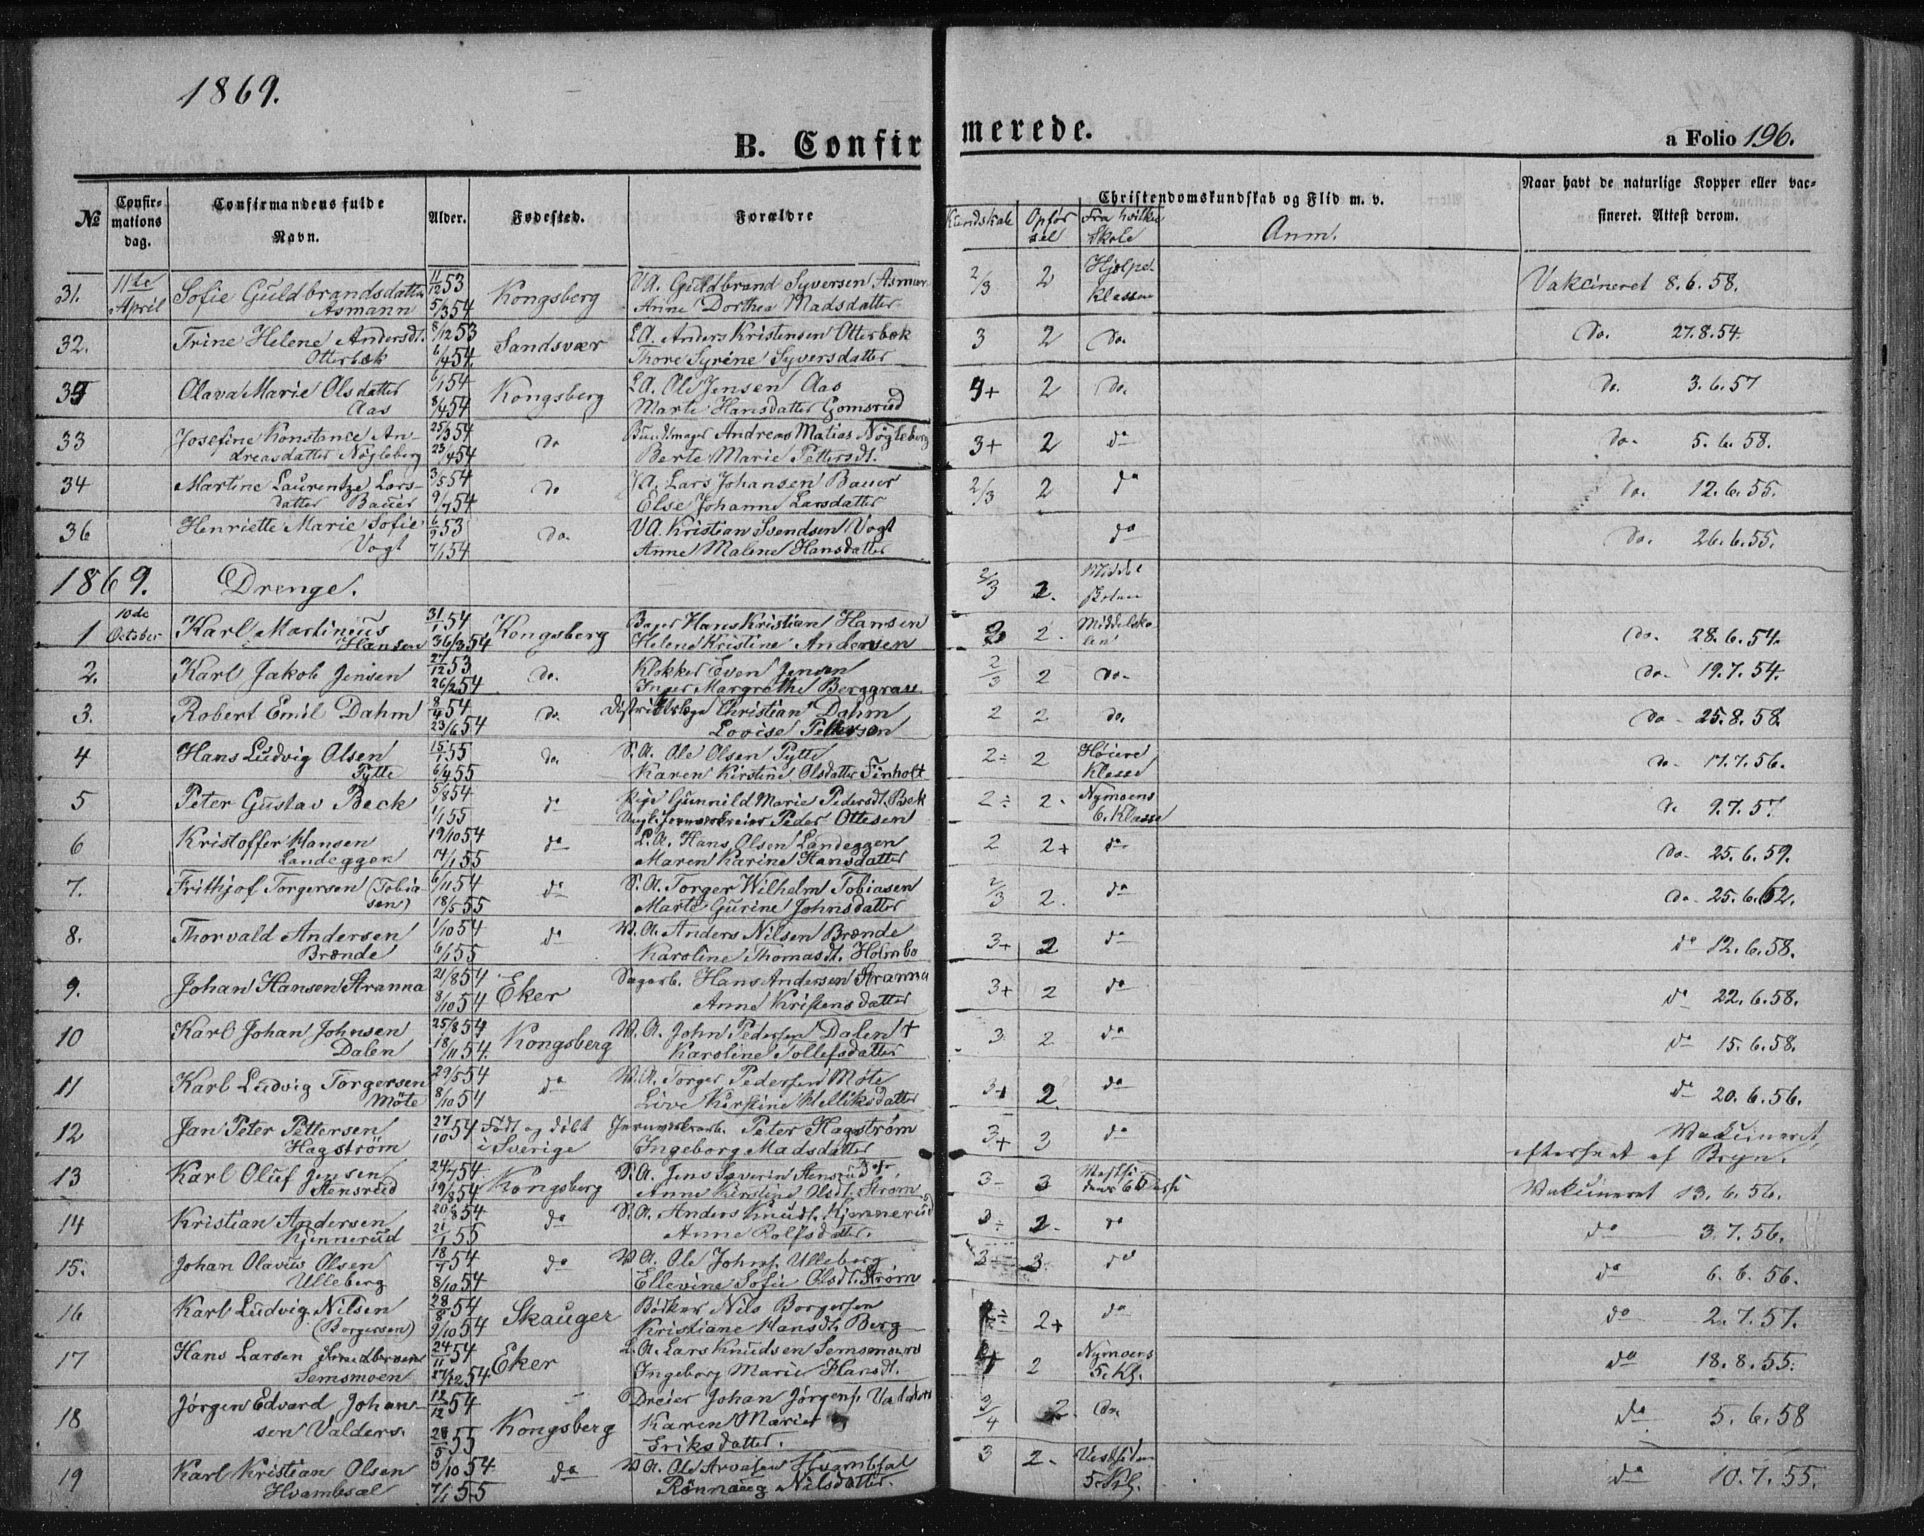 1869.
B. Confirmerede.
a Folio 196.
№
Confirmations dag.
Confirmandens fulde Navn.
Alder.
Fødested.
Forældre
Christendomskundskab og Flid m. v.
Kundskab
Opførsel
Fra hvilken Skole
Anm.
Naar havt de naturlige Kopper eller vaccineret. Attest derom.
31. 11te April Sofie Guldbrandsdatter 11/12 53 Kongsberg VA. Guldbrand Syversen Asmann 2/3 2 Hjælpe- Vakcineret 8.6.58.
Asmann 5/3 54 Anne Dorthea Madsdatter klassen
32. Trine Helene Andersdt. 8/12 53 Sandsvær LA. Anders Kristensen Otterbæk 3 2 do. Do. 27.8.54.
Otterbæk 6/4 54. Thore Syrine Syversdatter
35 Olava Marie Olsdatter 6/1 54 Kongsberg LA. Ole Jensen Aas 4+ 2 do. Do. 3.6.57
Aas 8/4 54 Marte Hansdatter Gomsrud
33 Josefine Konstance An- 25/3 54 do Andreas Matias Nøgleberg 3+ 2 do Do. 5.6.58.
dreasdatter Nøgleberg 23/4 54 Berte Marie Pettersdt.
34 Martine Laurentze Lars- 3/5 54 do Lars Johansen Bauer 2/3 2 do Do. 12.6.55.
datter Bauer 9/7 54 Else Johanne Larsdatter
36 Henriette Marie Sofie 6/9 53 do. VA. Kristian Svendsen Vogt do Do. 26.6.55.
Vogt 7/1 54 Anne Malene Hansdatter
1869. Drenge. 2/3 2.
1 10de October Karl Martinius 31/1 54 Kongsberg Bager Hans Kristian Hansen 2 2. Middelsko- Do. 28.6.54.
Hansen 54 Helene Kristine Andersen len
2. Karl Jakob Jensen 53 do. Klokker Even Jensen 2/3 2 do. Do. 19.7.54.
26/2 54 Inger Margrethe Berggrav
3. Robert Emil Dahm 8/4 54 do. Distriktslæge Christian Dahm 2 2 do. Do. 25.8.58.
23/6 54 Lovise Petersen
4 Hans Ludvig Olsen 15/1 55 do. S.A. Ole Olsen Tytte 2÷ 2 Høiere Do. 17.7.56.
Tytte 6/4 55 Karen Kirstine Olsdatter Finholt Klasse
5 Peter Gustav Beck 5/8 54 do Pige Gunnild Marie Pedersdt. Bek 2÷ 2. Nymoens 9.7.57
1/1 55 Peder Ottesen 6. Klasse
6 Kristoffer Hansen 19/10 54 do L.A. Hans Olsen Landeggen 2 2+ do Do. 25.6.59.
Landeggen 14/1 55 Maren Karine Hansdatter
7. Frithjof Torgersen (Tobia- 6/11 54 do S.A. Torger Wilhelm Tobiasen 2/3 2. do Do. 25.6.62.
sen) 18/5 55 Marte Gurine Johnsdatter
8. Thorvald Andersen 1/10 54 do W.A. Anders Nilsen Brønde 3+ 2 do do 12.6.58.
Brønde 6/1 55 Karoline Thomasdt. Holmbo
9. Johan Hansen Stranna 21/8 54 Eker Sagarb. Hans Andersen Stranna 3+ 2 do do 22.6.58.
8/10 54 Anne Kristensdatter
10 Karl Johan Johnsen 25/8 54 Kongsberg W.A. John Pedersen Dalen + 3 2 do do 15.6.58.
Dalen 18/11 54. Karoline Tollefsdatter
11 Karl Ludvig Torgersen 29/5 54 do W.A. Torger Pedersen Møte 3+ 2. do do 20.6.56.
Møte 8/10 54 Live Kirstine Kittilsdatter
12 Jan Peter Pettersen 27/10 54 Født og døbt Jernverksarb. Peter Hagstrøm 3+ 3 do Vakcineret,
Hagstrøm i Sverige Ingeborg Madsdatter efterseet af Bryn.
13 Karl Oluf Jensen 24/7 54 Kongsberg S.A. Jens Severin Stensrud 3- 3 Vakcineret 13.6.56.
Stensrud 19/8 54 Anne Kirstine Olsdt. Strøm
14 Kristian Andersen 20/8 54 do S.A. Anders Knudt. Kjennerud 3÷ 2. do do 3.7.56.
Kjennerud 21/1 55 Anne Rolfsdatter.
15. Johan Olavus Olsen 18/7 54 do W.A. Ole Johns. Ulleberg 3+ 3. do do 6.6.56.
Ulleberg 8/10 54 Ellevine Sofie Olsdt. Strøm
16 Karl Ludvig Nilsen 28/8 54 Skauger Bødker Nils Borgersen 2+ do do 2.7.57.
(Borgersen) 9/10 54 Kristiane Hansdt. Berg
17 Hans Larsen 24/11 54 Eker L.A. Lars Knudsen Semsmoens 2 Nymoens do 18.8.55.
Semsmoen 27/12 54. Ingeborg Marie Hansdt. 5. Kl.
18 Jørgen Edvard Johan- 12/12 54 Kongsberg Dreier Johan Jørgens. Valders 3/4 2. do. do 5.6.58
sen Valders. 28/5 55 Karen Marie
Eriksdatter.
19 Karl Kristian Olsen 9/10 54 do W.A. Ole Arvesen Hvambsal 3 2. Vestsiden do 10.7.55.
Hvambsal 7/1 55 Rønnaug Nilsdatter. 5. Kl.